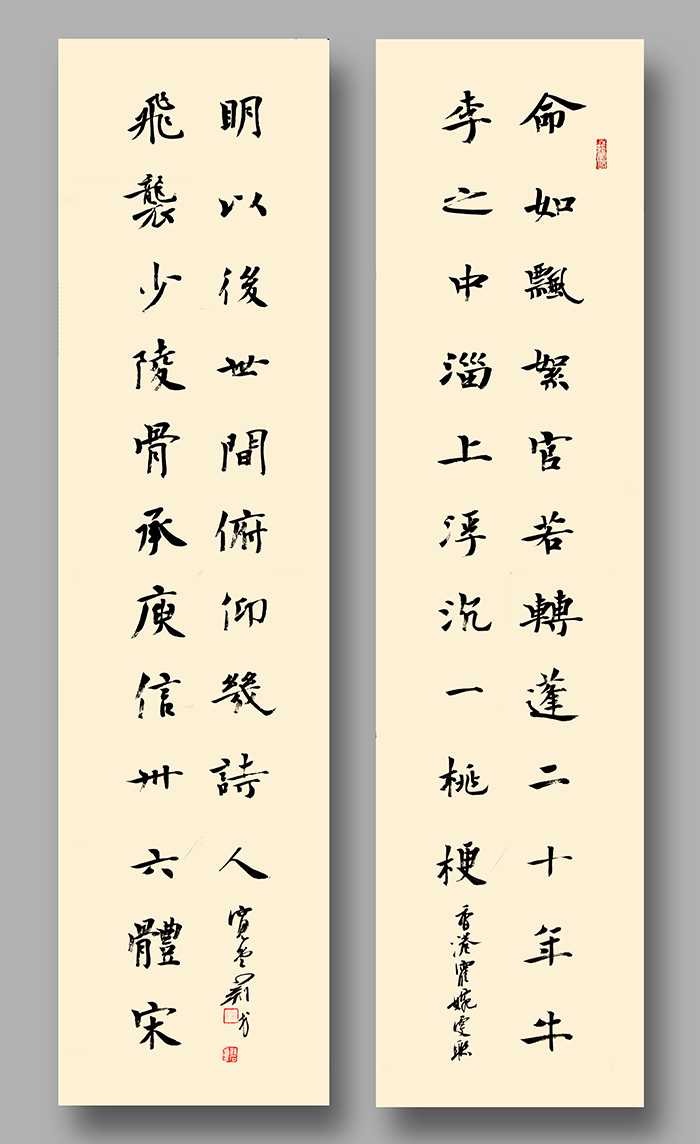 命如飄絮官若轉蓬二十年牛
李之中淄上浮沉一桃梗
香港霍婉雯聯
飛襲少陵骨承庾信卅六體宋
明以後世間俯仰幾詩人